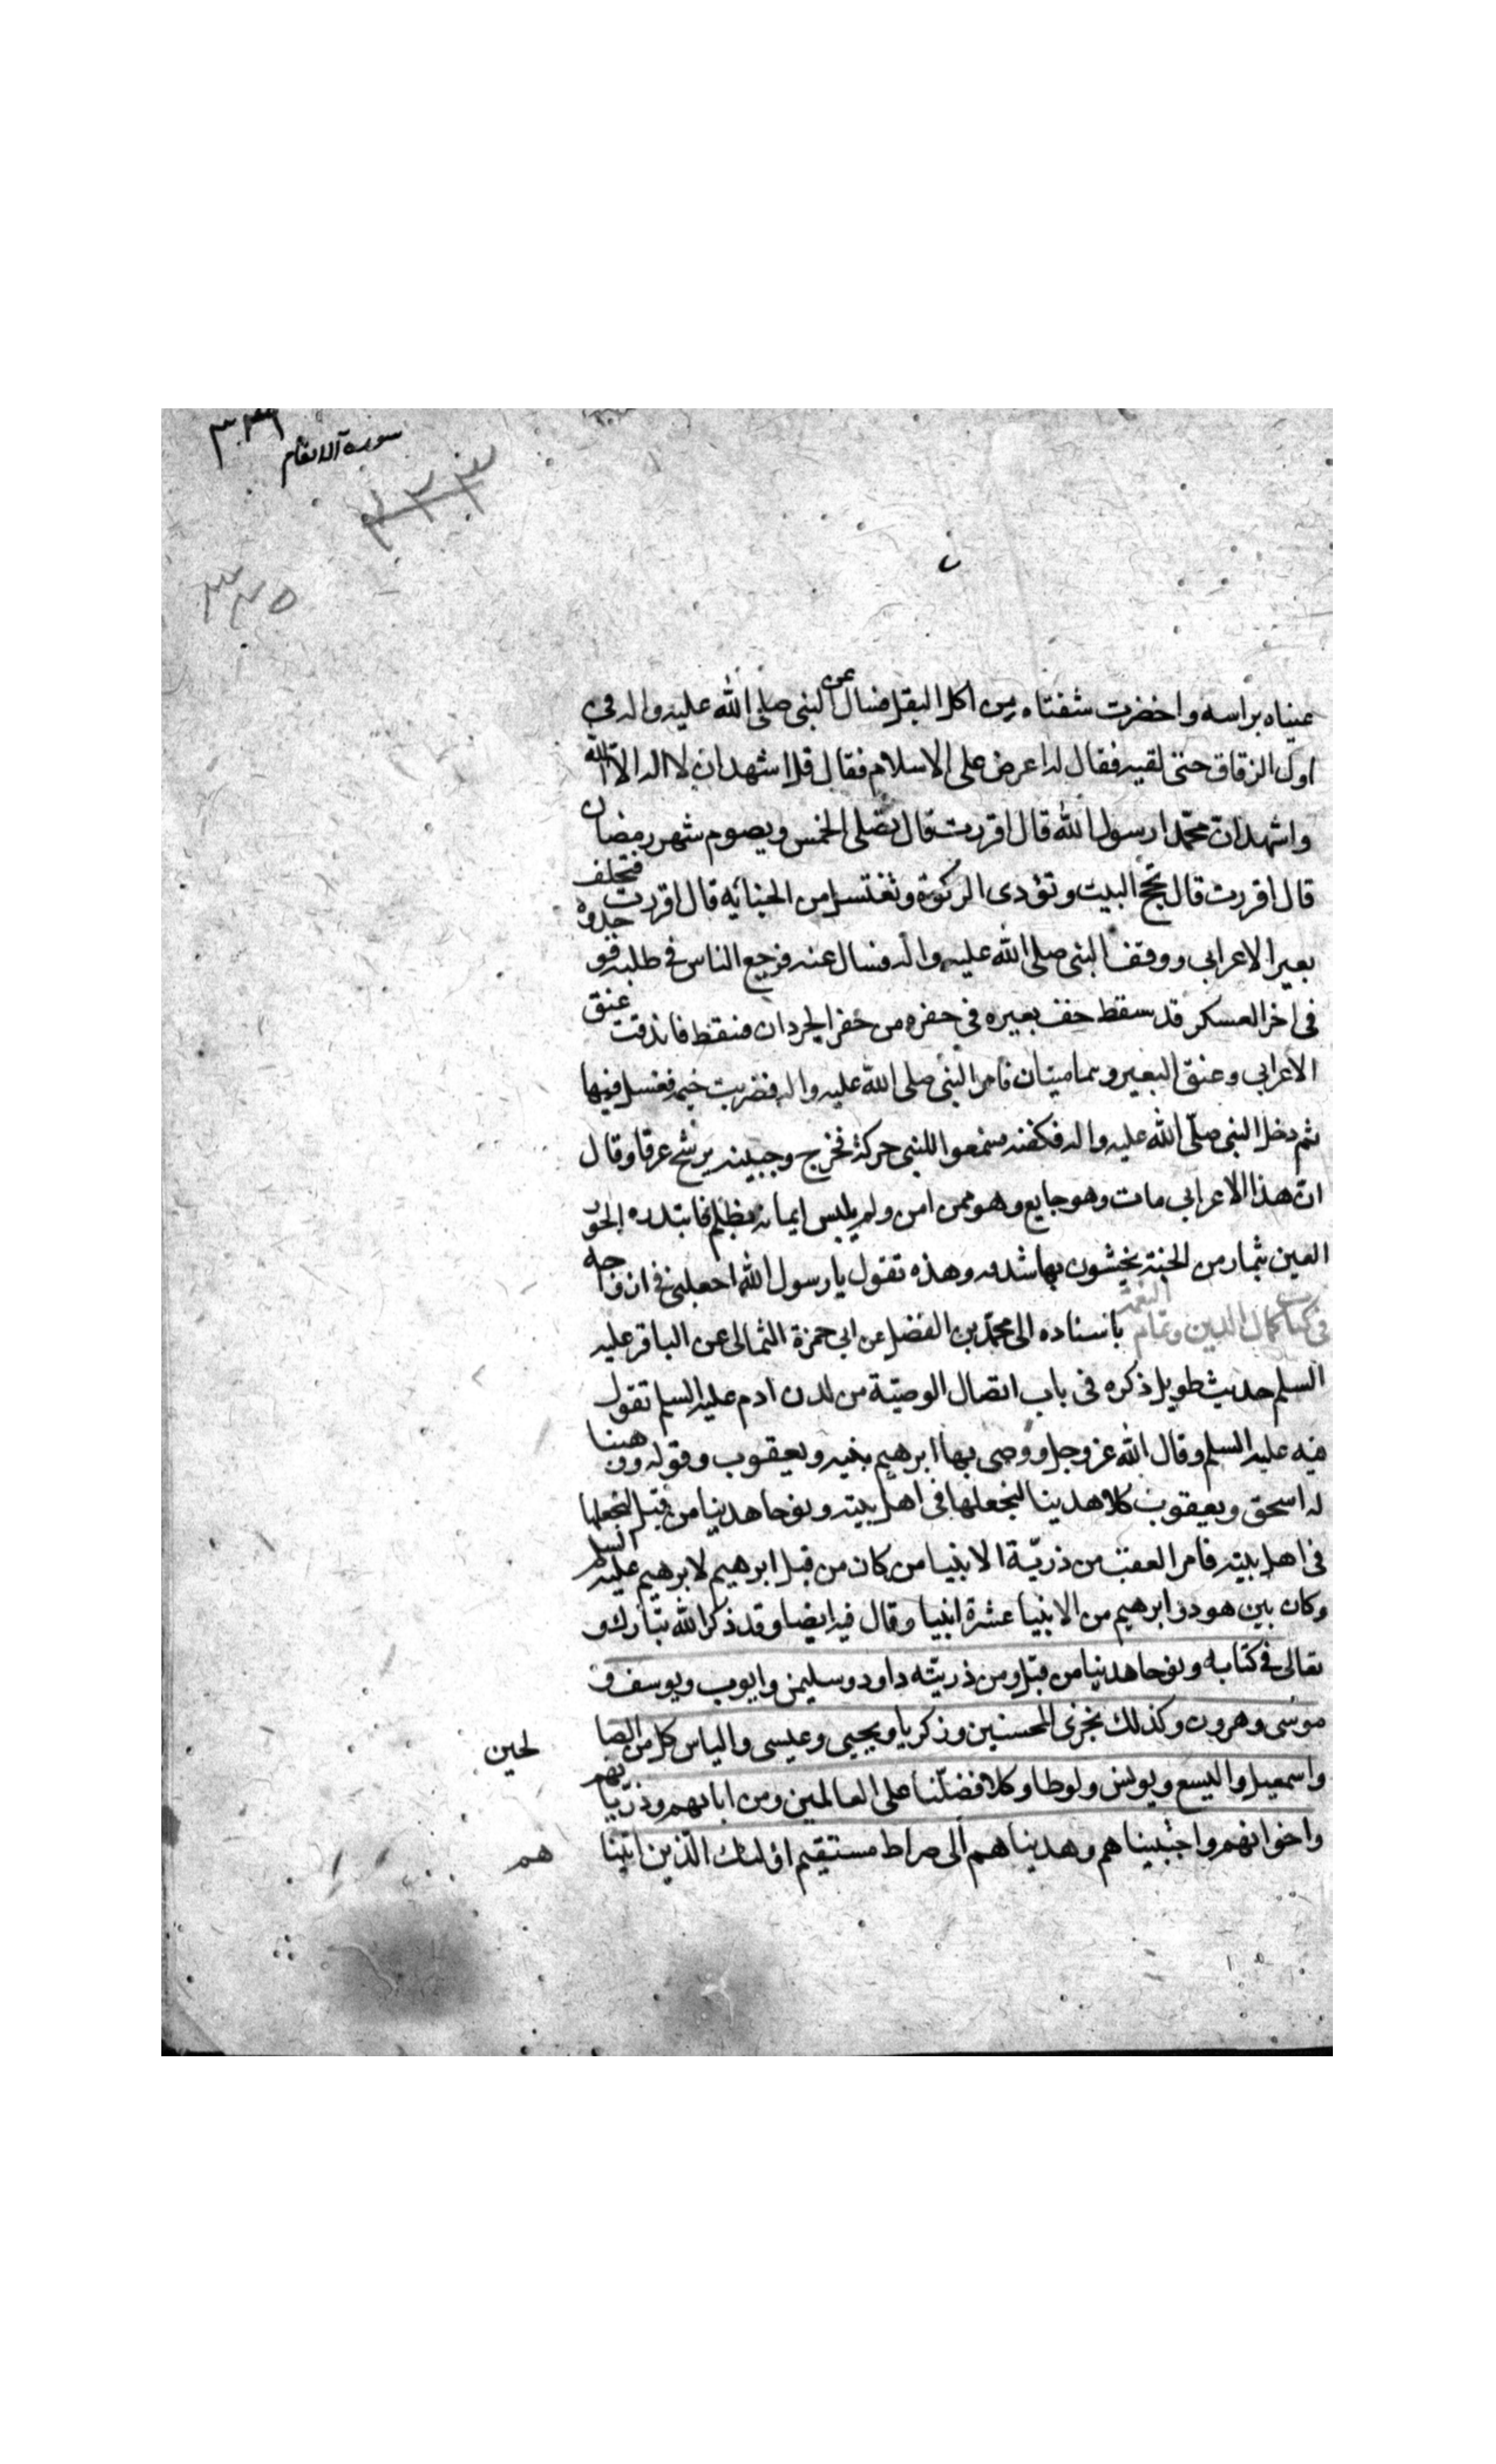 سورة الانعام
٣٣٣
٣٣٥
عيناه براسه واخضرت شفتاه من اكل البقل فسال عن النبى صلى الله عليه واله فى
اول الزقاق حتى لقيه فقال له اعرض على الاسلام فقال قل اشهد ان لا اله الا الله
واشهد ان محمّدا رسول الله قال اقررت قال تصلى الخمس ويصوم شهر رمضان
قال اقررت قال تحج البيت وتؤدى الزكوة وتغتسل من الجنابة قال اقررت فتخلف
بعير الاعرابى ووقف النبى صلى الله عليه واله فسال عنه فرجع الناس فى طلبه فوجدوه
فى اخر العسكر قد سقط خف بعيره فى حفره من حفر الجردان فسقط فاندقت عنق
الاعرابى وعنق البعير وهما ميتان فامر النبى صلى الله عليه واله فضربت خيمه فغسل فيها
ثم دخل النبى صلّى الله عليه واله فكفنه فسمعوا للنبى حركة فخرج وجبينه يرشح عرقا وقال
ان هذا الاعرابى مات وهو جايع وهو ممن امن ولم يلبس ايمانه بظلم فابتدره الحور
العين بثمار من الجنة يحشون بها شدقه وهذه تقول يا رسول الله اجعلنى فى ازواجه
فى كتاب كمال الدين وتمام النعمة باسناده الى محمّد بن الفضل عن ابى حمزة الثمالى عن الباقر عليه
السلم حديث طويل ذكره فى باب اتصال الوصيّة من لدن ادم عليه السلم تقول
فيه عليه السلم وقال الله عز وجل ووصى بها ابرهيم بنيه ويعقوب وقوله ووهبنا
له اسحق ويعقوب كلا هدينا لنجعلها فى اهل بيته ونوحا هدينا من قبل لنجعلها
فى اهل بيته فامر العقب من ذريّة الانبيا من كان من قبل ابرهيم لابرهيم عليه السلم
وكان بين هود وابرهيم من الانبيا عشرة انبيا وقال فيه ايضا وقد ذكر الله تبارك و
تعالى فى كتابه ونوحا هدينا من قبل ومن ذريته داود وسليمن وايوب ويوسف و
موسى وهرون وكذلك نجزى المحسنين وزكريا ويحيى وعيسى والياس كل من الصا لحين
واسمعيل واليسع ويونس ولوطا وكلا فضلنا على العالمين ومن ابائهم وذرياتهم
واخوانهم واجتبيناهم وهديناهم الى صراط مستقيم اولئك الّذين اتينا هم